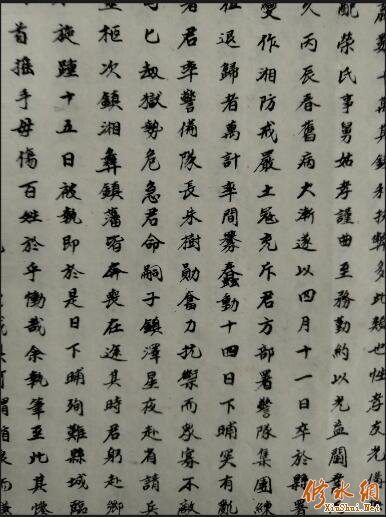 配榮氏事舅姑孝謹曲至務勤約以克益閫
久丙辰春舊病大漸遂以四月十一日卒於縣署
變作湘防戒嚴土寇充斥君方部署警隊集團練
退歸者萬計率間驀蠢動十四日下晡突有亂
者君率警備隊長朱樹勛奮力抗禦而眾寡不敵
司匕劫獄勢危急君命嗣子鎮澤星夜赴省請兵
柩次鎮湘彝鎮藩皆奔喪在途其時君躬赴鄉
旋踵十五日被執即於是日下晡殉難縣城臨
首搖手毋傷百姓於乎慟哉余執筆至此其悽
修水網
XiuShui.Net